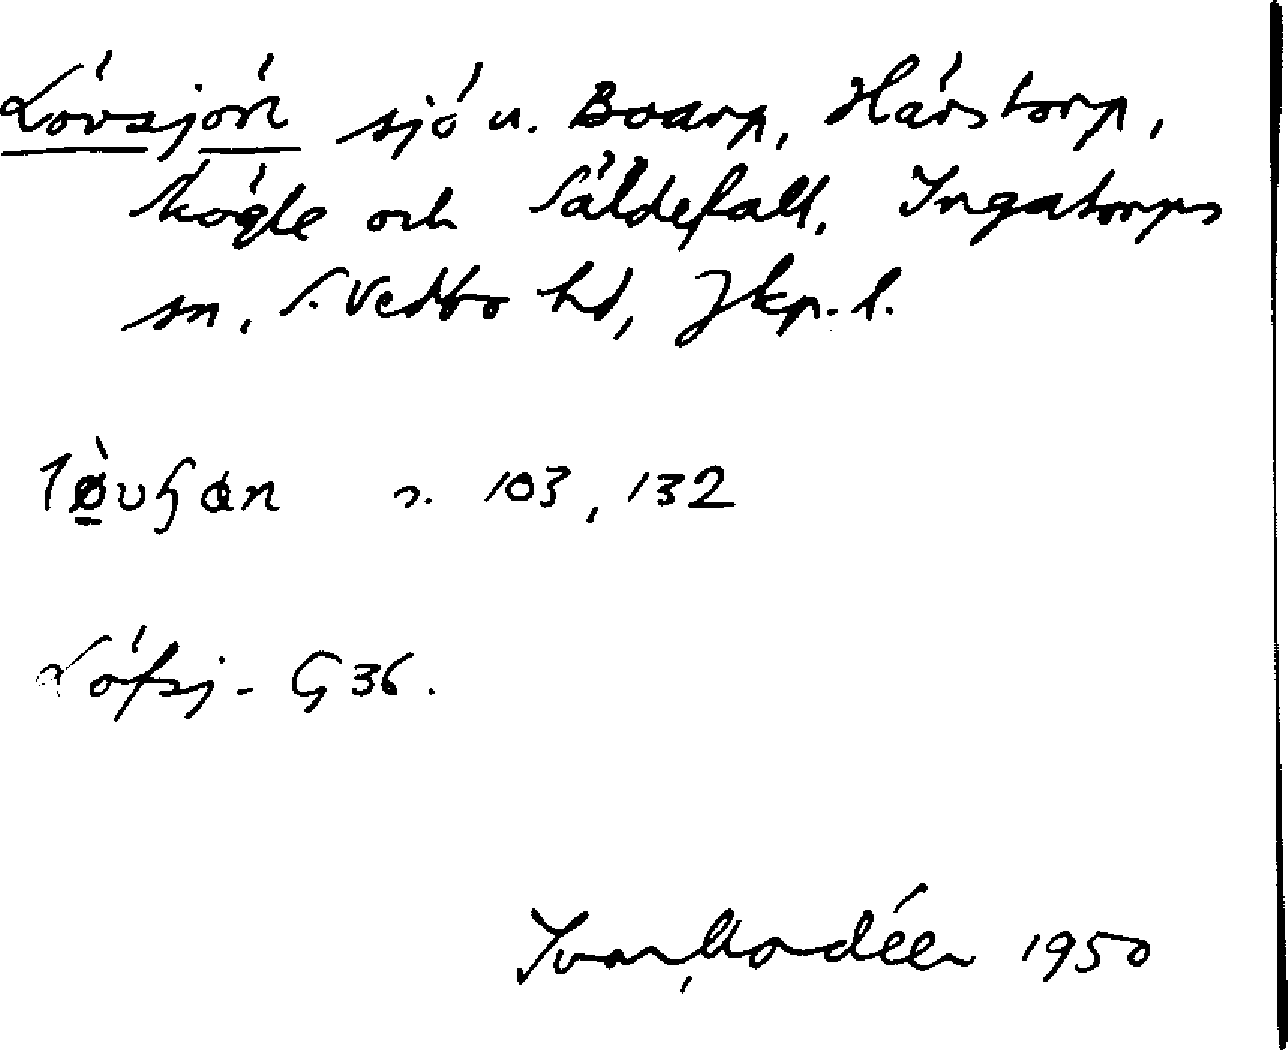 Lövsjön sjö u. Boarp, Härstorp,
Kögle och Säldefall, Ingatorps
sn, S. Vedbo hd, Jkp. l.
s. 103, 132
Löfsj- G 36.
Ivar Modéer 1950